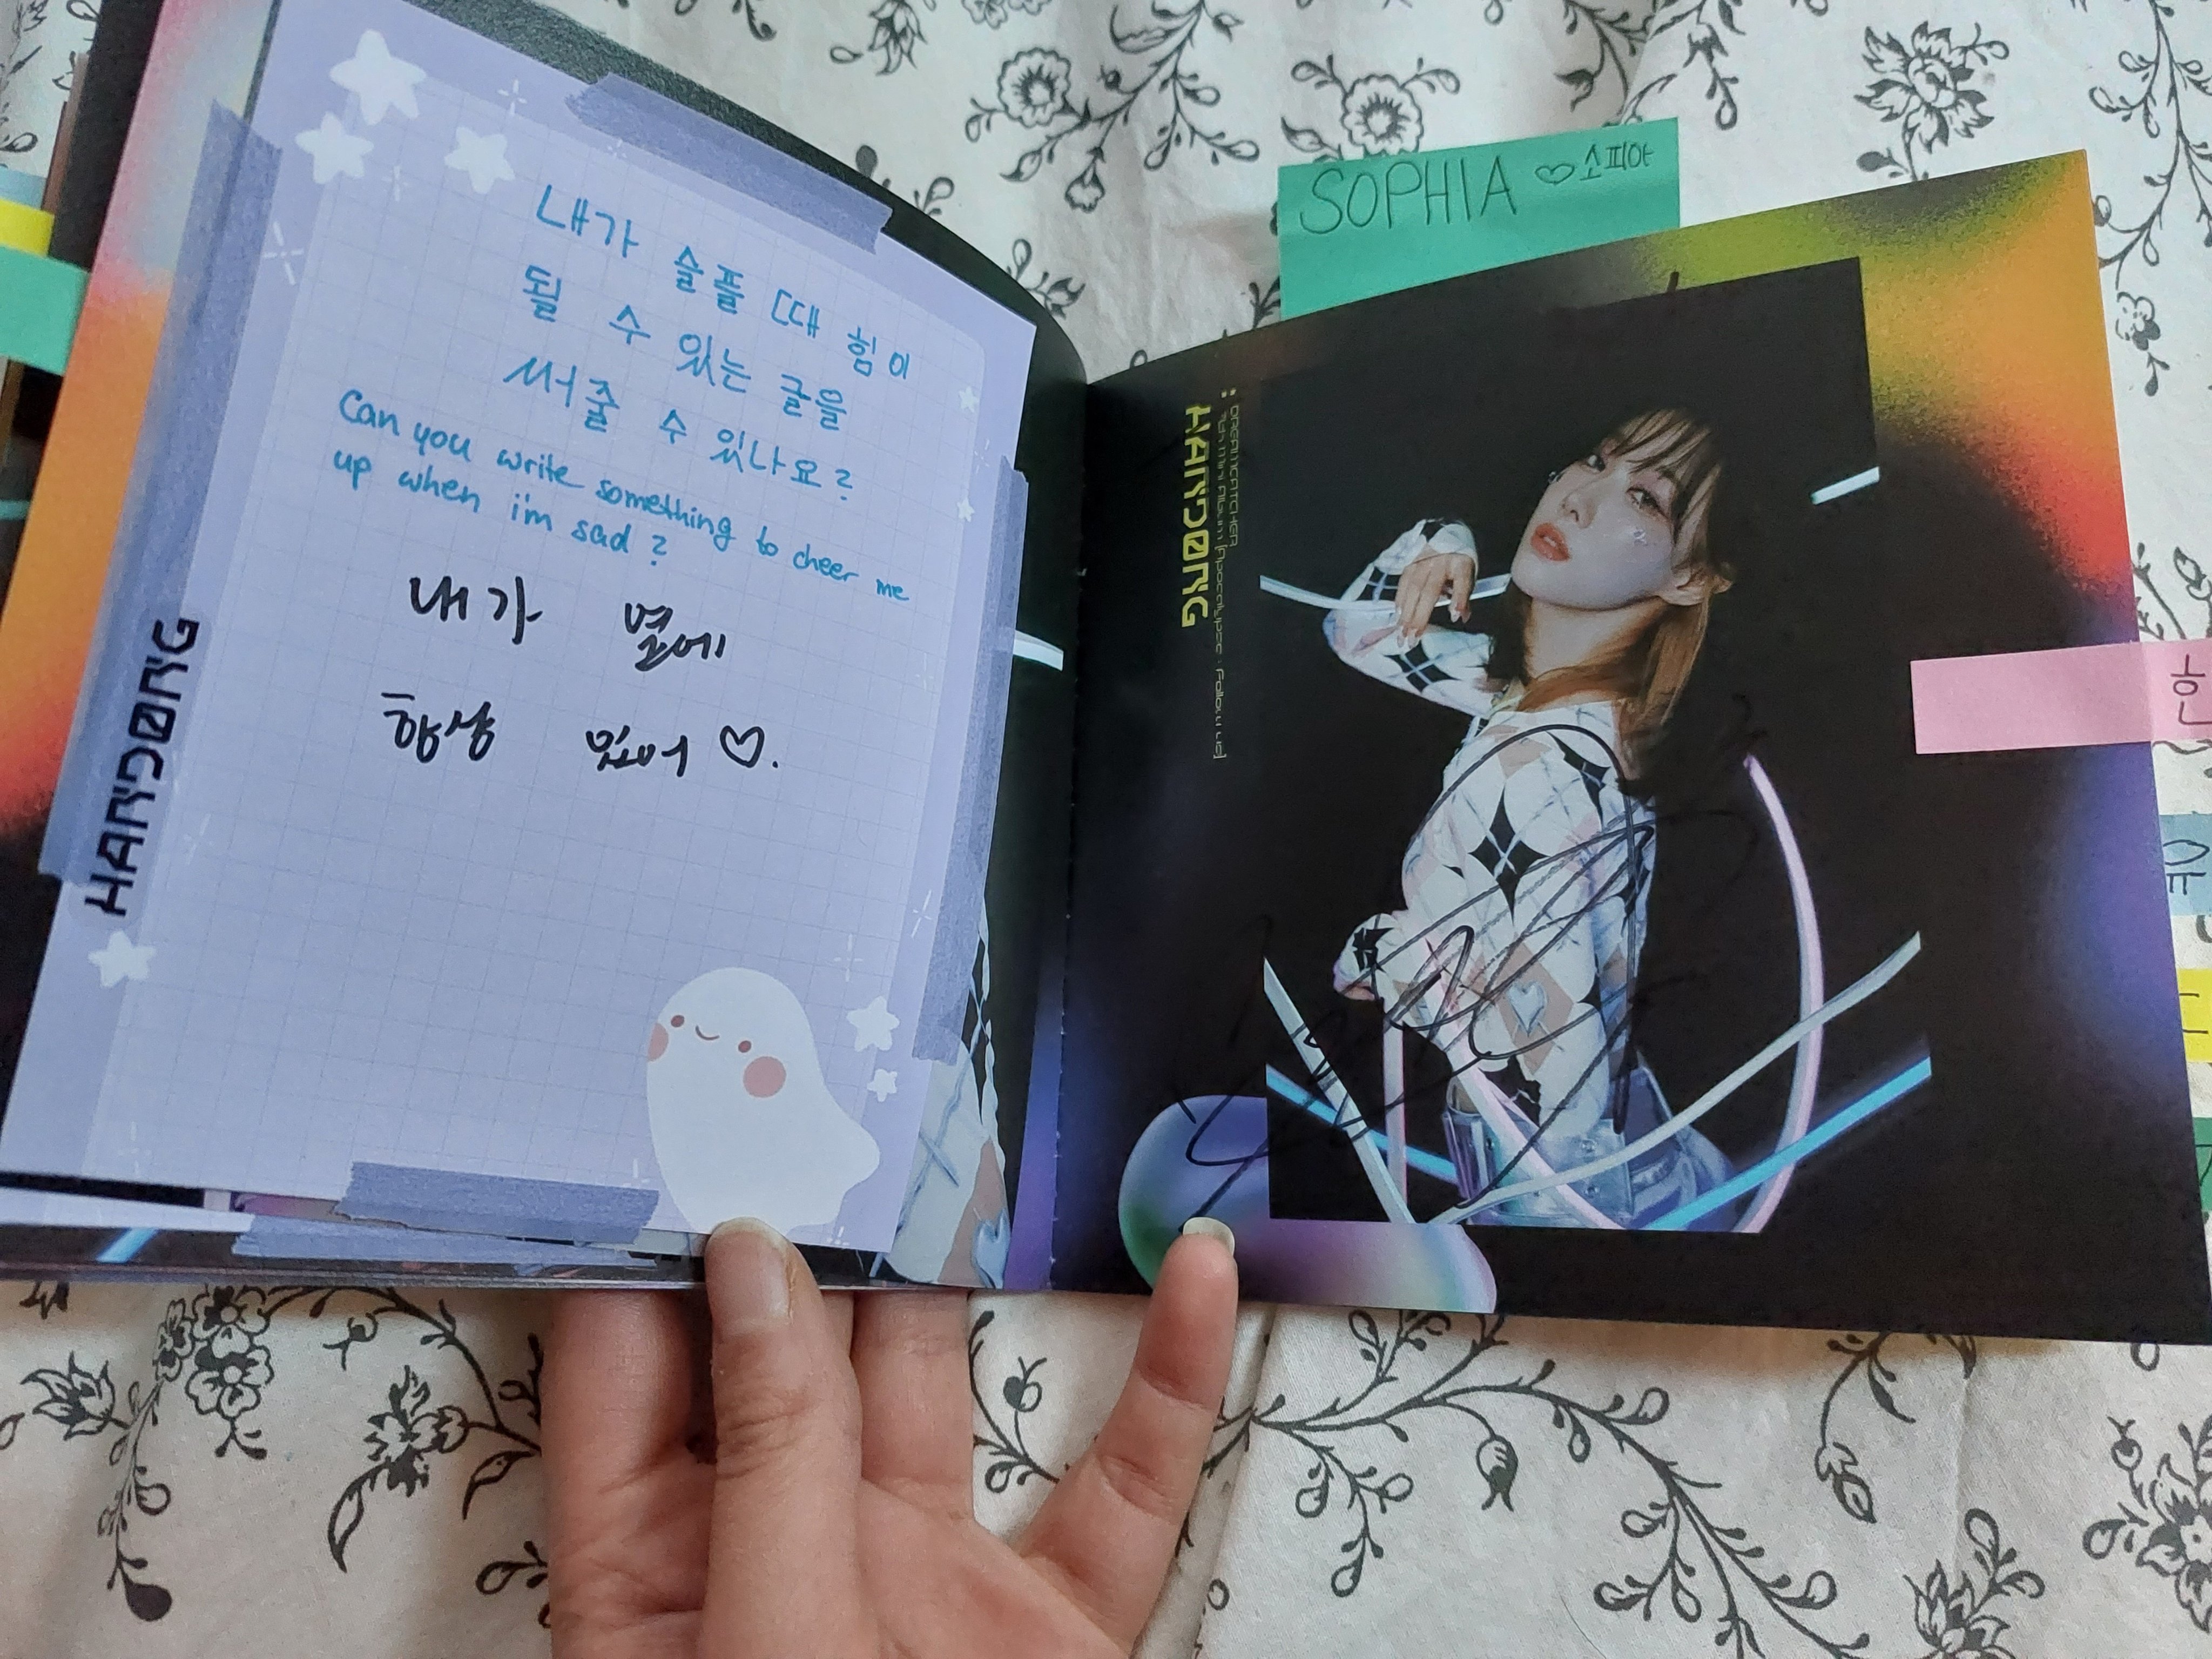 내가 슬플 때 힘이
될 수 있는 글을
써줄 수 있나요?
Can you write something to cheer me
up when i'm sad?
내가 옆에
항상 있어 ♡.
HANDONG
SOPHIA ♡ 소피아
: DREAMCATCHER
7th Mini Album [Apocalypse : Follow us]
HANDONG
한
유